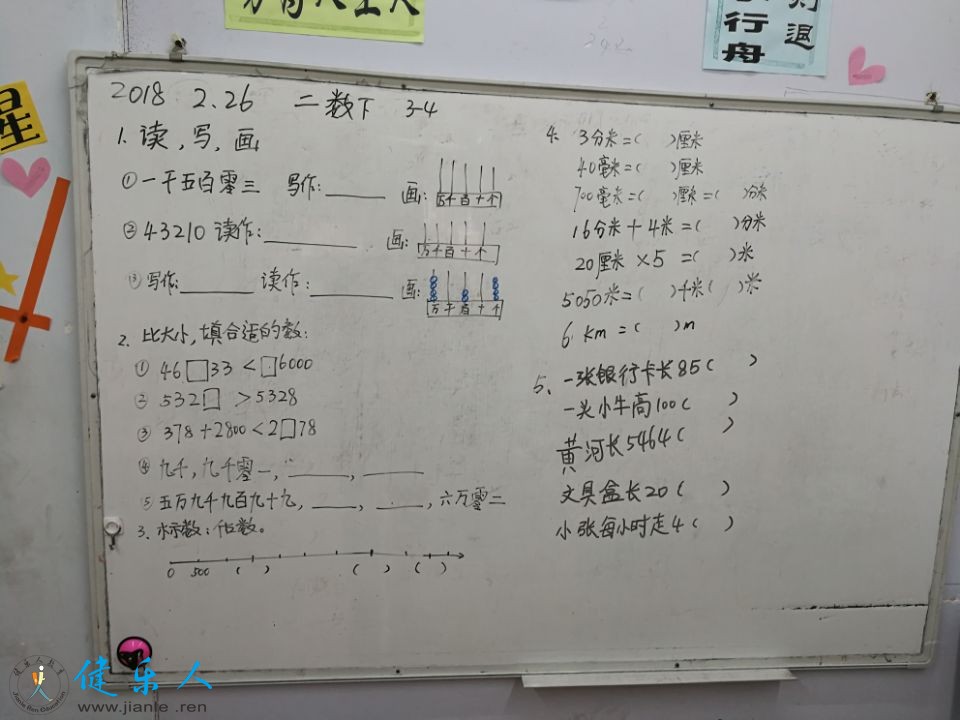 行舟
退
星
2018 2.26 二数下 3-4
1. 读,写,画
①一千五百零三 写作:______ 画: 万千百十个
②43210 读作:______ 画: 万千百十个
③写作:______ 读作:______ 画: 万千百十个
2. 比大小,填合适的数:
① 46□33 < □6000
② 532□ > 5328
③ 378+2800<2□78
④ 九千,九千零一,______,______
⑤ 五万九千九百九十九,____,____,六万零二
3. 标数:估数。
0 500 ( ) ( ) ( )
4. 3分米=( )厘米
40毫米=( )厘米
700毫米=( )厘米=( )分米
16分米+4米=( )分米
20厘米×5 =( )米
5050米=( )千米( )米
6 km =( )m
5、一张银行卡长85( )
一头小牛高100( )
黄河长5464( )
文具盒长20( )
小张每小时走4( )
健乐人
www.jianle.ren